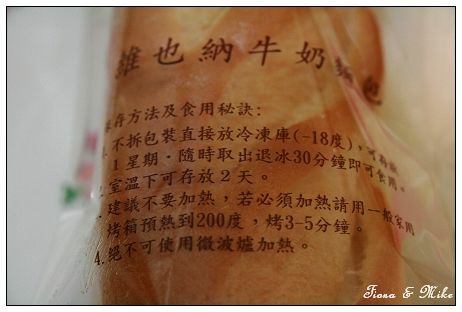 維也納牛奶麵包
保存方法及食用秘訣:
1. 不拆包裝直接放冷凍庫(-18度),可存放
1星期.隨時取出退冰30分鐘即可食用。
2. 室溫下可存放2天。
建議不要加熱,若必須加熱請用一般家用
烤箱預熱到200度,烤3-5分鐘。
4. 絕不可使用微波爐加熱。
Fiona & Mike